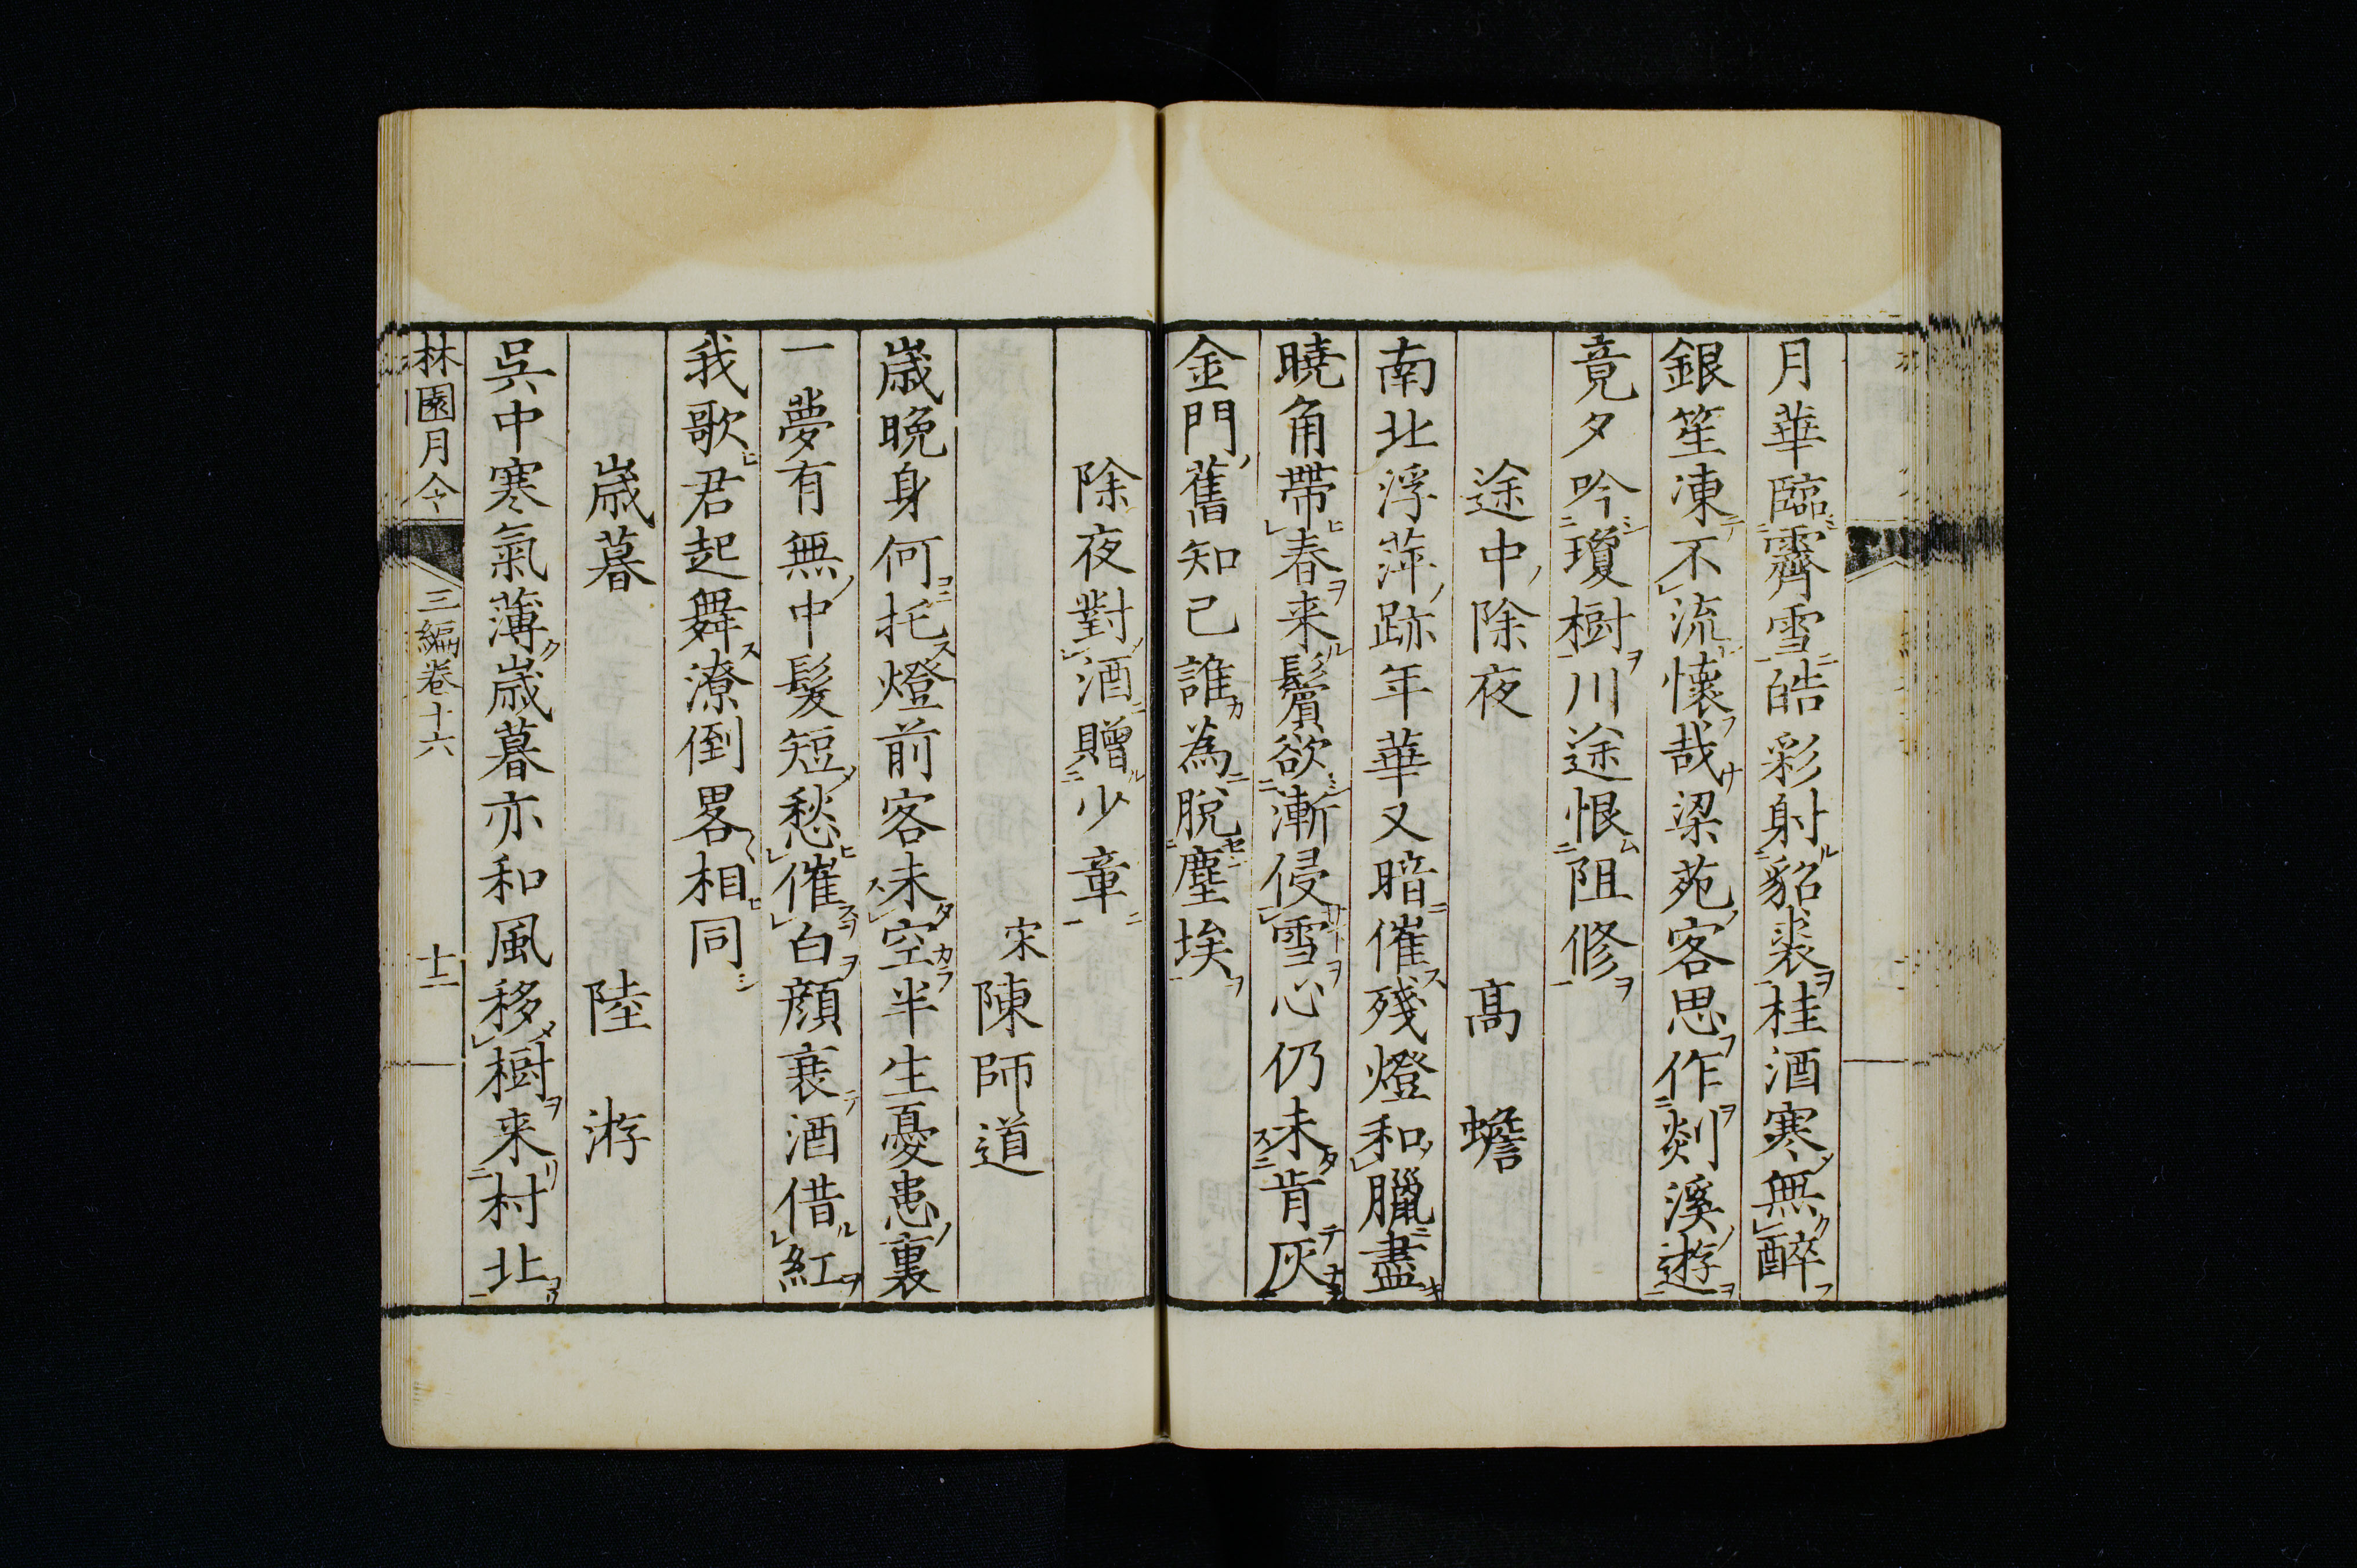 月華臨霽雪皓彩射貂裘桂酒寒無醉
銀笙凍不流懷哉梁苑客思作剡溪遊
竟夕吟瓊樹川途恨阻修
途中除夜 高蟾
南北浮萍跡年華又暗催殘燈和臘盡
曉角帶春来鬢欲漸侵雪心仍未肯灰
金門舊知己誰為脫塵埃
除夜對酒贈少章
宋陳師道
歲晚身何托燈前客未空半生憂患裏
一夢有無中髮短愁催白顔衰酒借紅
我歌君起舞潦倒畧相同
歲暮 陸游
吳中寒氣薄歲暮亦和風移樹来村北
林園月令 三編卷十六 十二